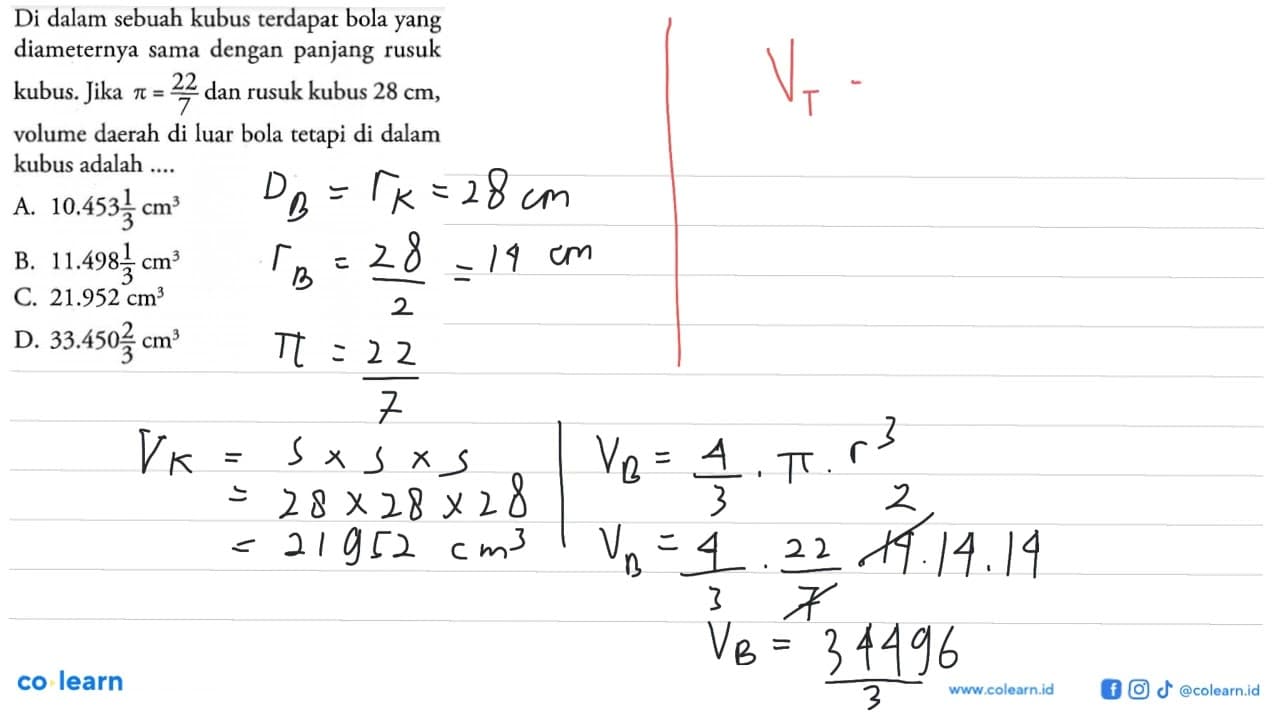 Di dalam sebuah kubus terdapat bola yang
diameternya sama dengan panjang rusuk
kubus. Jika π = 22/7 dan rusuk kubus 28 cm,
volume daerah di luar bola tetapi di dalam
kubus adalah ....
A. 10.453 1/3 cm³
B. 11.498 1/3 cm³
C. 21.952 cm³
D. 33.450 2/3 cm³
D_B = r_K = 28 cm
r_B = 28/2 = 14 cm
π = 22/7
V_K = s × s × s
= 28 × 28 × 28
= 21952 cm³
V_B = 4/3 . π . r³
V_B = 4/3 . 22/7 14 2 . 14 . 14
V_B = 34496/3
V_T =
co learn
www.colearn.id
@colearn.id